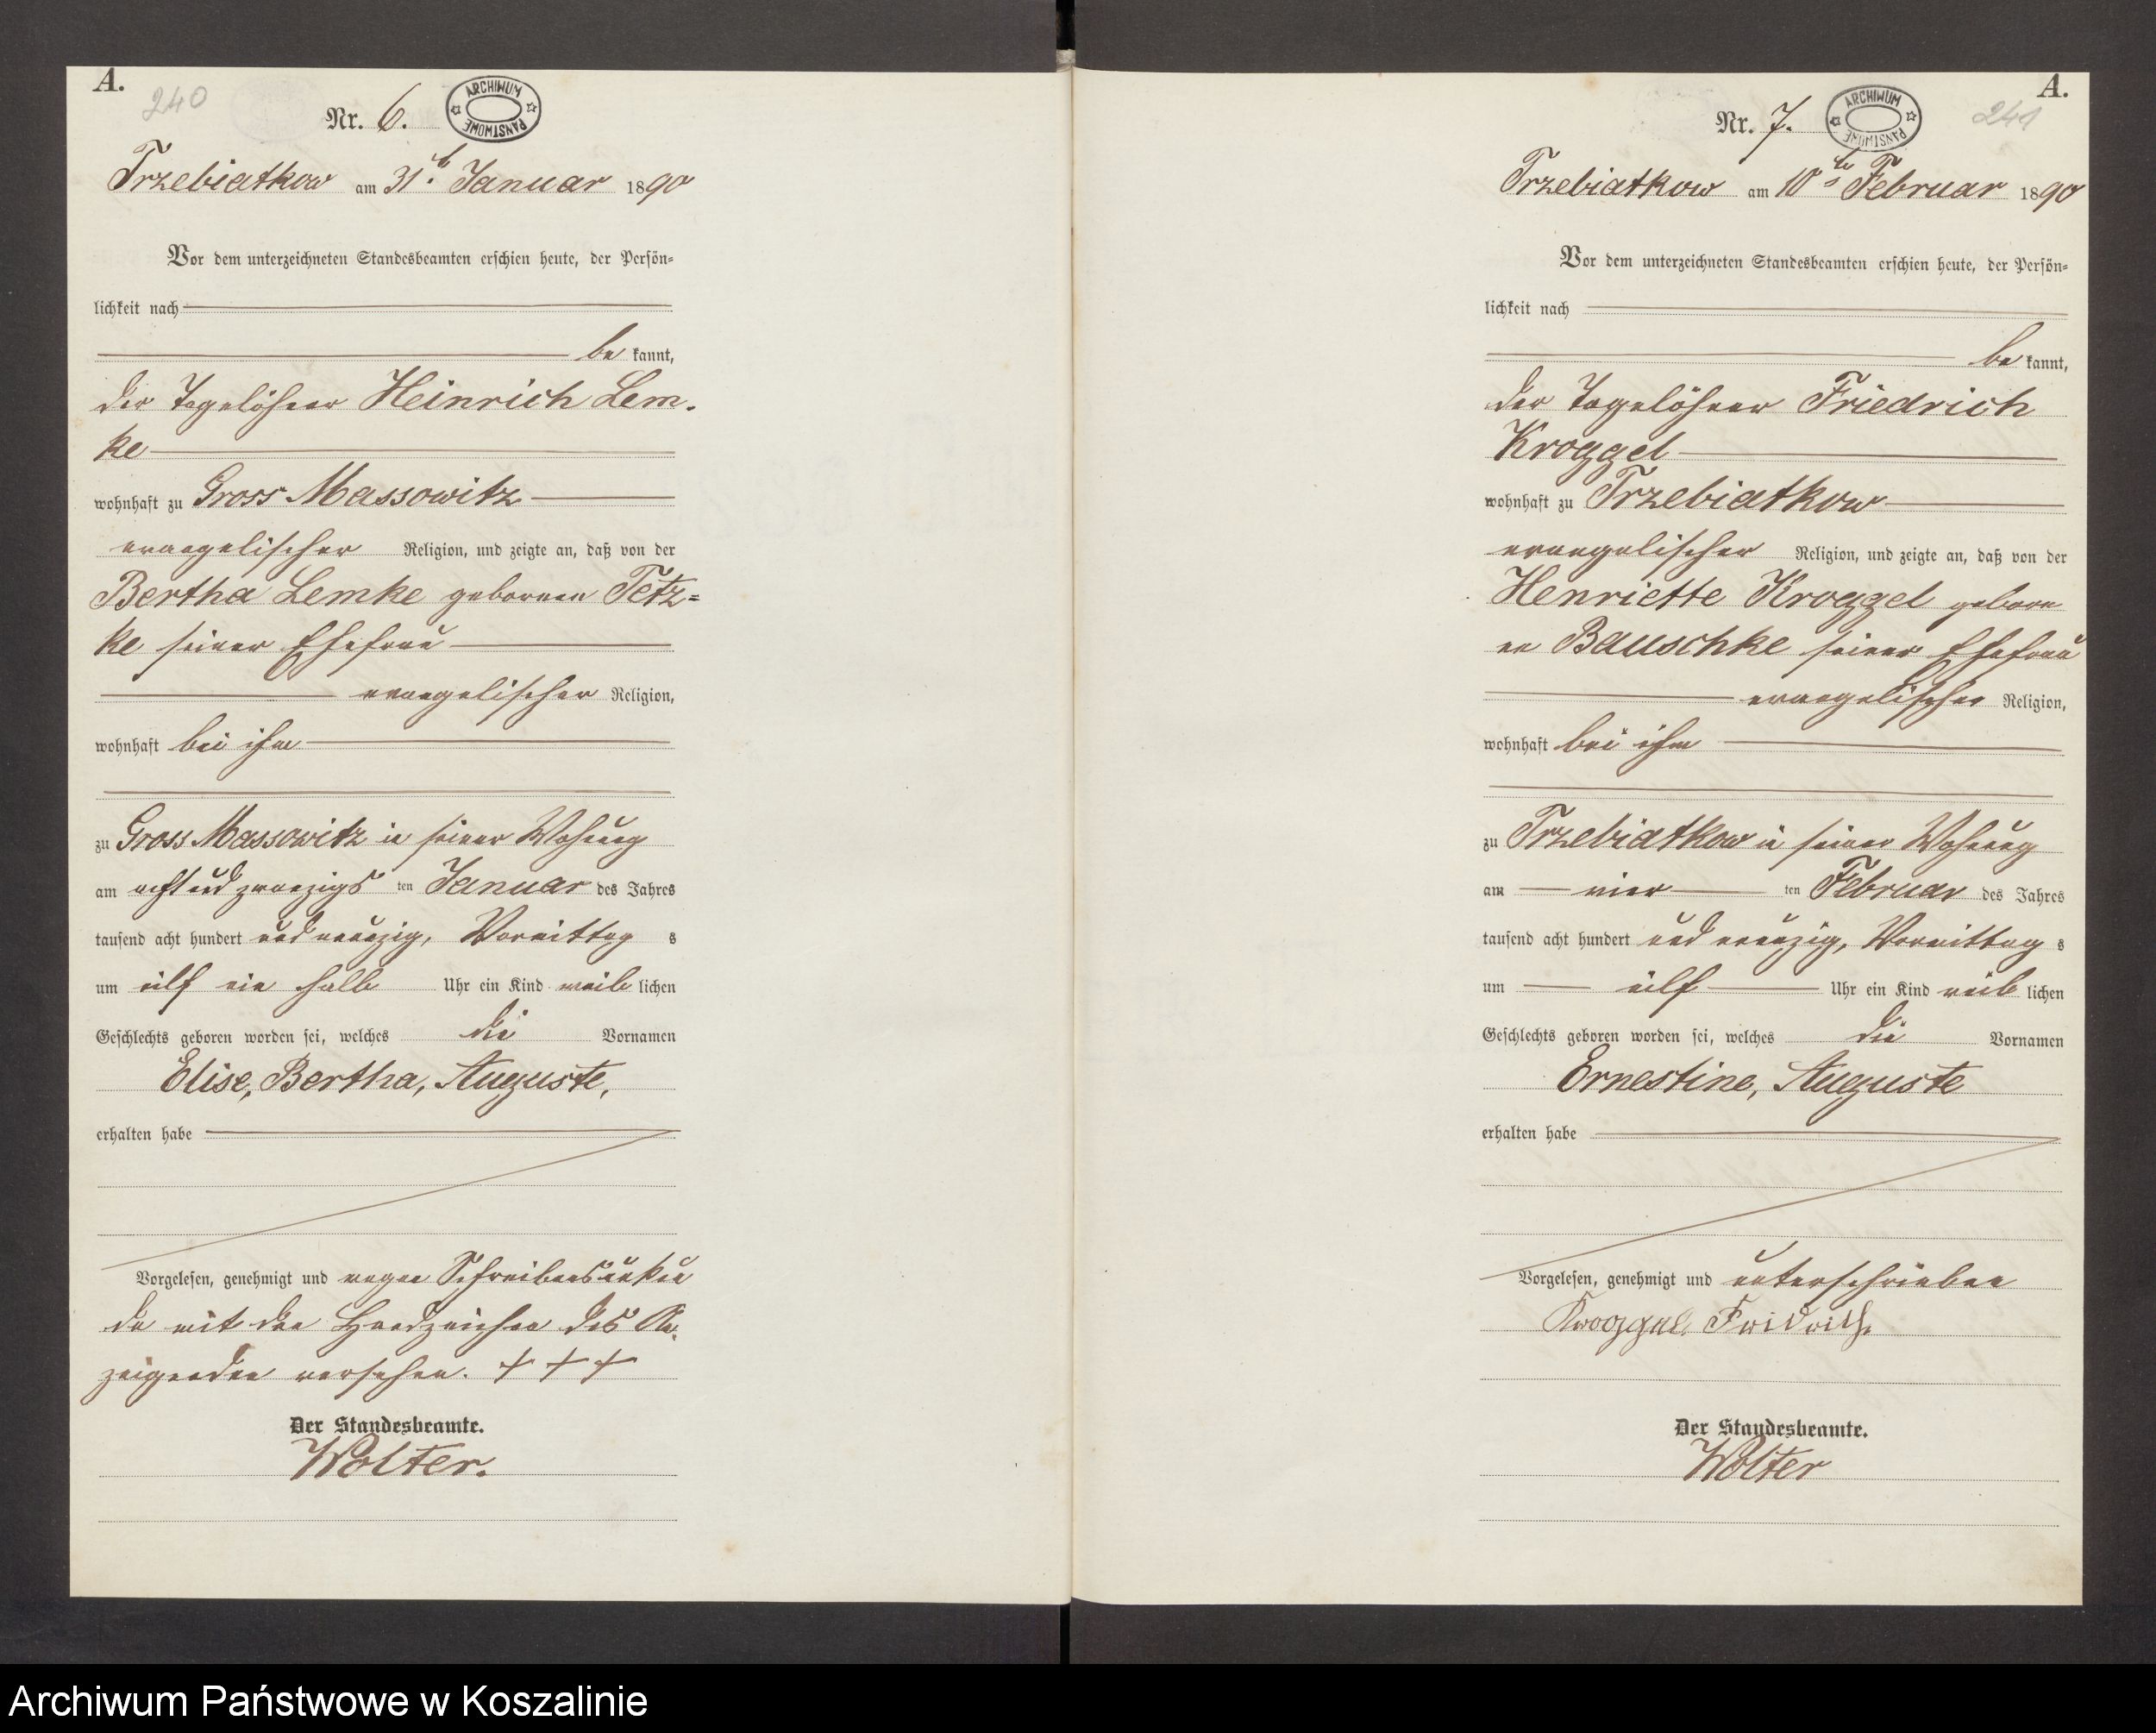 A.
240
Nr. 6.
ARCHIWUM PAŃSTWOWE
Trzebiatkow am 31t. Januar 1890
Vor dem unterzeichneten Standesbeamten erschien heute, der Persön=
lichkeit nach
be kannt,
der Tagelöhner Heinrich Lem-
ke
wohnhaft zu Gross Massowitz
evangelischer Religion, und zeigte an, daß von der
Bertha Lemke geborenen Tetz=
ke seiner Ehefrau
evangelischer Religion,
wohnhaft bei ihm
zu Gross Massowitz in seiner Wohnung
am acht und zwanzigs ten Januar des Jahres
tausend acht hundert und neunzig, Vormittag s
um eilf ein halb Uhr ein Kind weib lichen
Geschlechts geboren worden sei, welches die Vornamen
Elise, Bertha, Auguste,
erhalten habe
Vorgelesen, genehmigt und wegen Schreibensunkun
de mit den Handzeichen des An-
zeigenden versehen. + + +
Der Standesbeamte.
Wolter.
A.
241
Nr. 7.
ARCHIWUM PAŃSTWOWE
Trzebiatkow am 10ten Februar 1890
Vor dem unterzeichneten Standesbeamten erschien heute, der Persön=
lichkeit nach
be kannt,
der Tagelöhner Friedrich
Kroggel
wohnhaft zu Trzebiatkow
evangelischer Religion, und zeigte an, daß von der
Henriette Kroggel geboren
en Bauschke seiner Ehefrau
evangelischer Religion,
wohnhaft bei ihm
zu Trzebiatkow in seiner Wohnung
am vier ten Februar des Jahres
tausend acht hundert und neunzig, Vormittag s
um eilf Uhr ein Kind weib lichen
Geschlechts geboren worden sei, welches die Vornamen
Ernestine, Auguste
erhalten habe
Vorgelesen, genehmigt und unterschrieben
Kroggel Fridrich
Der Standesbeamte.
Wolter
Archiwum Państwowe w Koszalinie